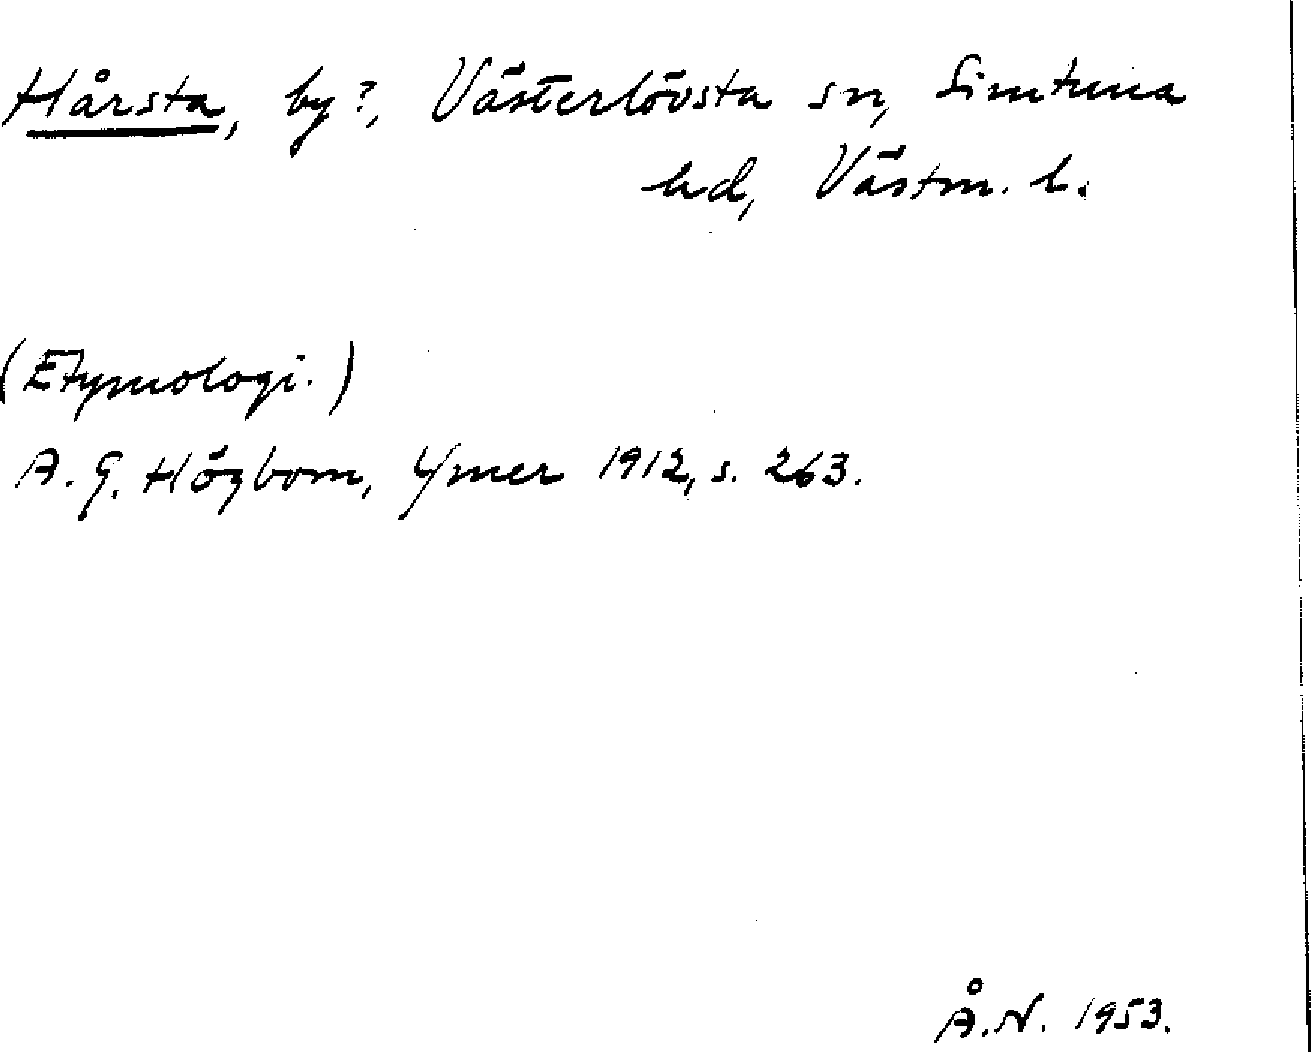 Hårsta, by?, Västerlövsta sn, Simtuna
hd, Västm. l.
(Etymologi.)
A. G. Högbom, Ymer 1912, s. 263.
Å.N. 1953.